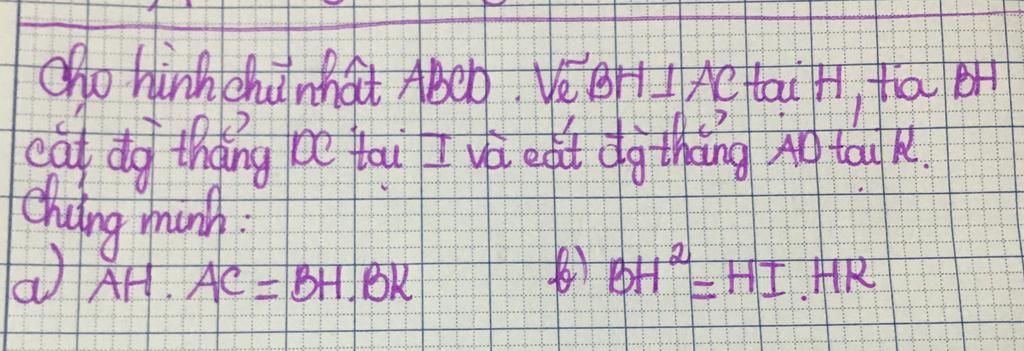 Cho hình chữ nhật ABCD. Vẽ BH ⊥ AC tại H, tia BH
cắt đg thẳng DC tại I và cắt đg thẳng AD tại K.
Chứng minh:
a) AH. AC = BH. BK b) BH² = HI. HK